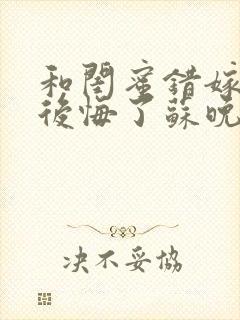 和閨蜜錯嫁
後悔了蘇晚
决不妥協